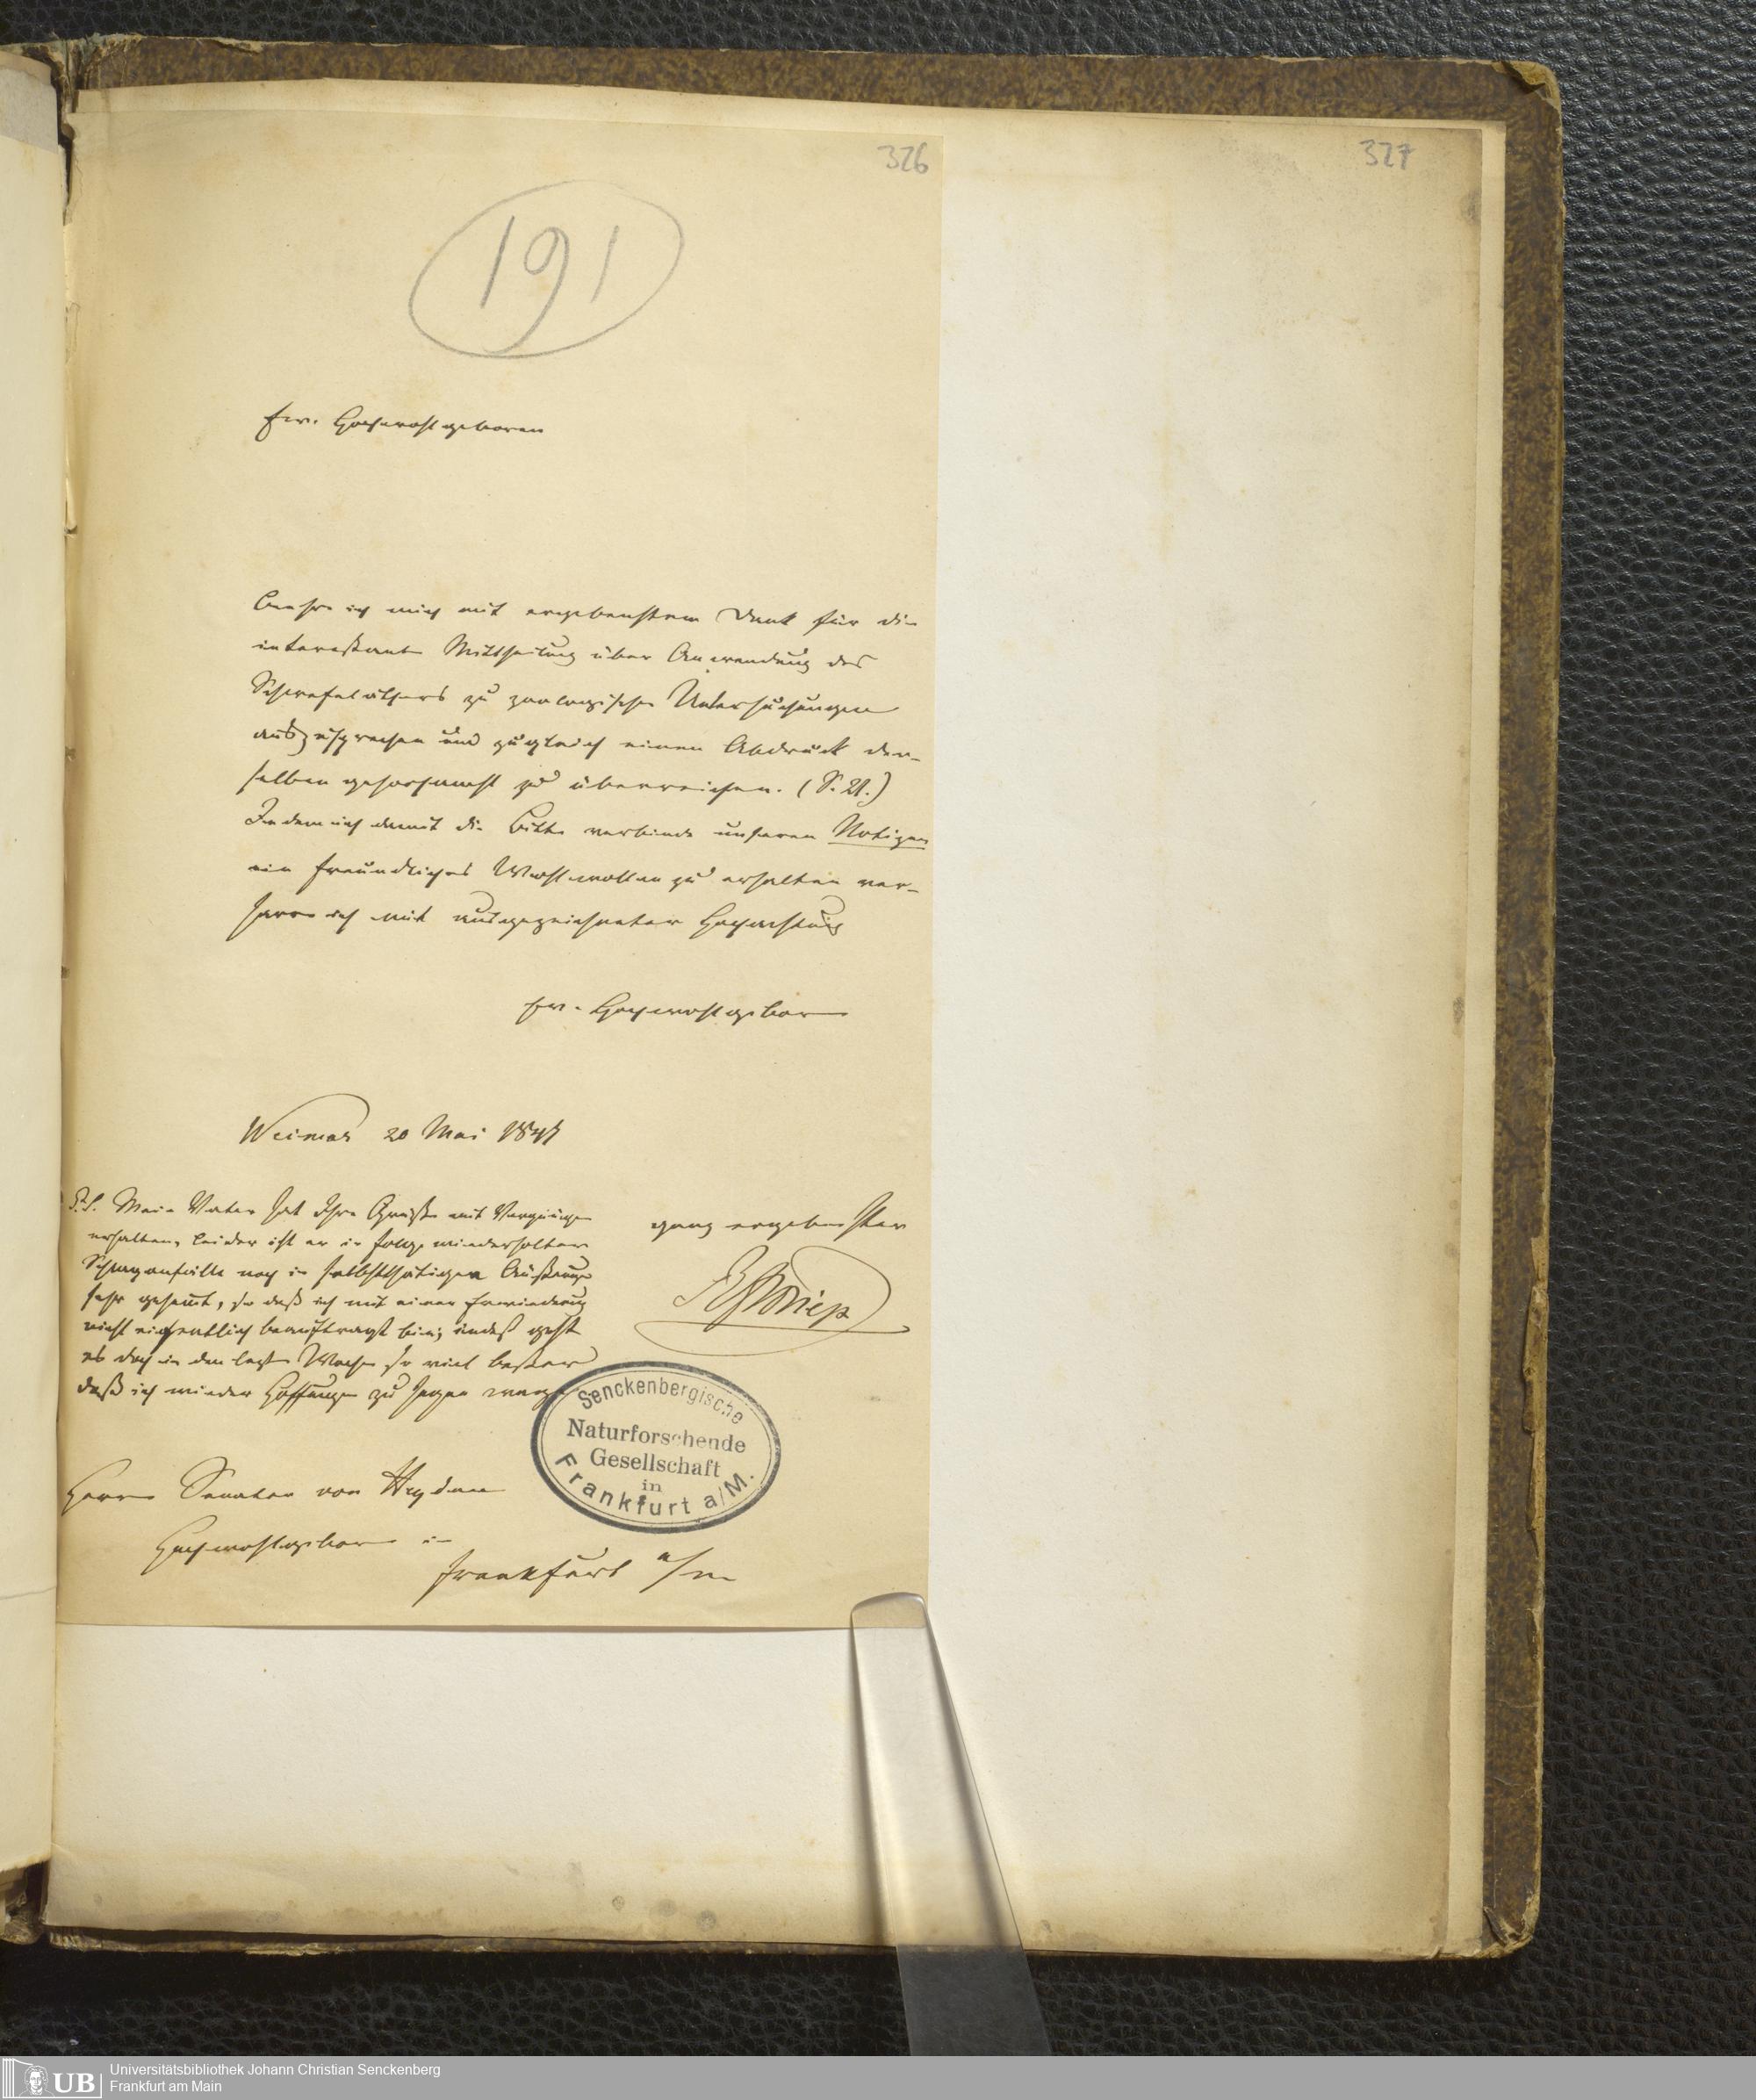 326
327
191
Ew. Hochwohlgeboren
beehre ich mich mit ergebenstem Dank für die
interessante Mittheilung über Anwendung des
Schwefeläthers zu zoologischen Untersuchungen
auszusprechen und zugleich einen Abdruck der-
selben gehorsamst zu überreichen. (S. 21.)
Indem ich damit die Bitte verbinde unseren Notizen
ein freundliches Wohlwollen zu erhalten ver-
harre ich mit ausgezeichneter Hochachtung
Ew. Hochwohlgeboren
Weimar 20 Mai 1847
ganz ergebenster
RFroriep
P.S. Mein Vater hat Ihre Grüße mit Vergnügen
erhalten, leider ist er in Folge wiederholter
Schlaganfälle noch in selbstthätiger Äußerung
sehr gehemmt, so daß ich mit einer Erwiederung
nicht eigentlich beauftragt bin; indeß geht
es doch in den letzten Wochen so viel besser
daß ich wieder Hoffnungen zu hegen wage
Herrn Senator von Heyden
Hochwohlgeboren in
Frankfurt a/M
Senckenbergische
Naturforschende
Gesellschaft
in
Frankfurt a/M.
UB
Universitätsbibliothek Johann Christian Senckenberg
Frankfurt am Main